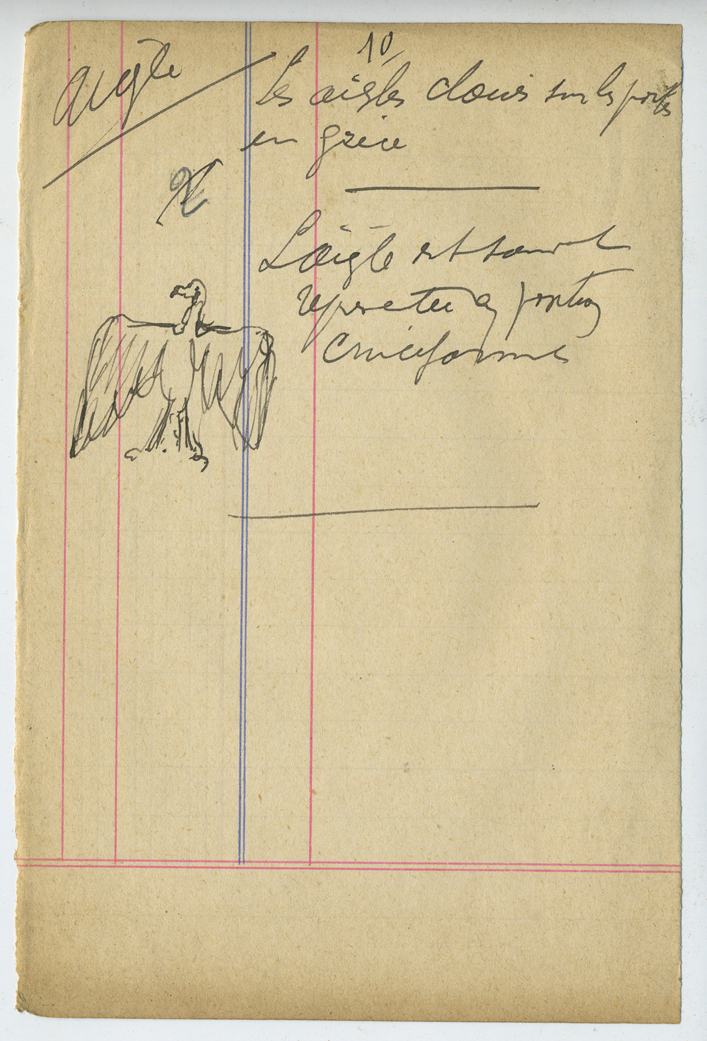 10
Aigle
Les aigles cloués sur les portes
en Grèce
L'aigle est souvent
représenté en position
cruciforme